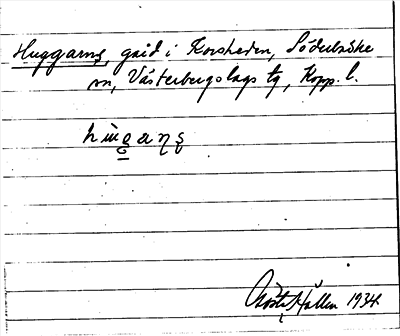 Huggarns, gård i Korsheden, Söderbärke
sn, Västerbergslags tg, Kopp. l.
Gösta Hallén 1934